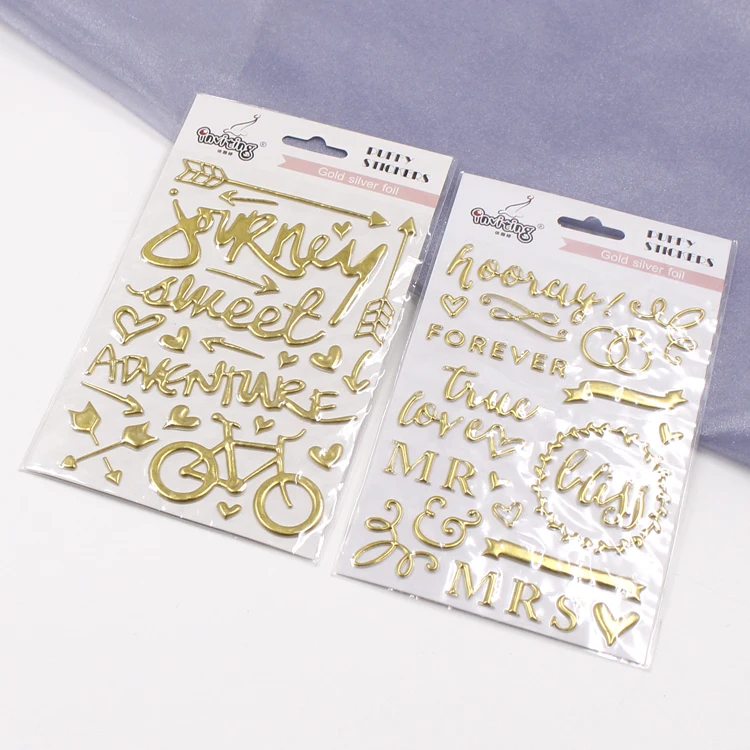 inviting®
PUFFY
STICKERS
Gold silver foil
journey
sweet
ADVENTURE
inviting®
PUFFY
STICKERS
Gold silver foil
hooray!
FOREVER
true
love
bliss
MR
&
MRS